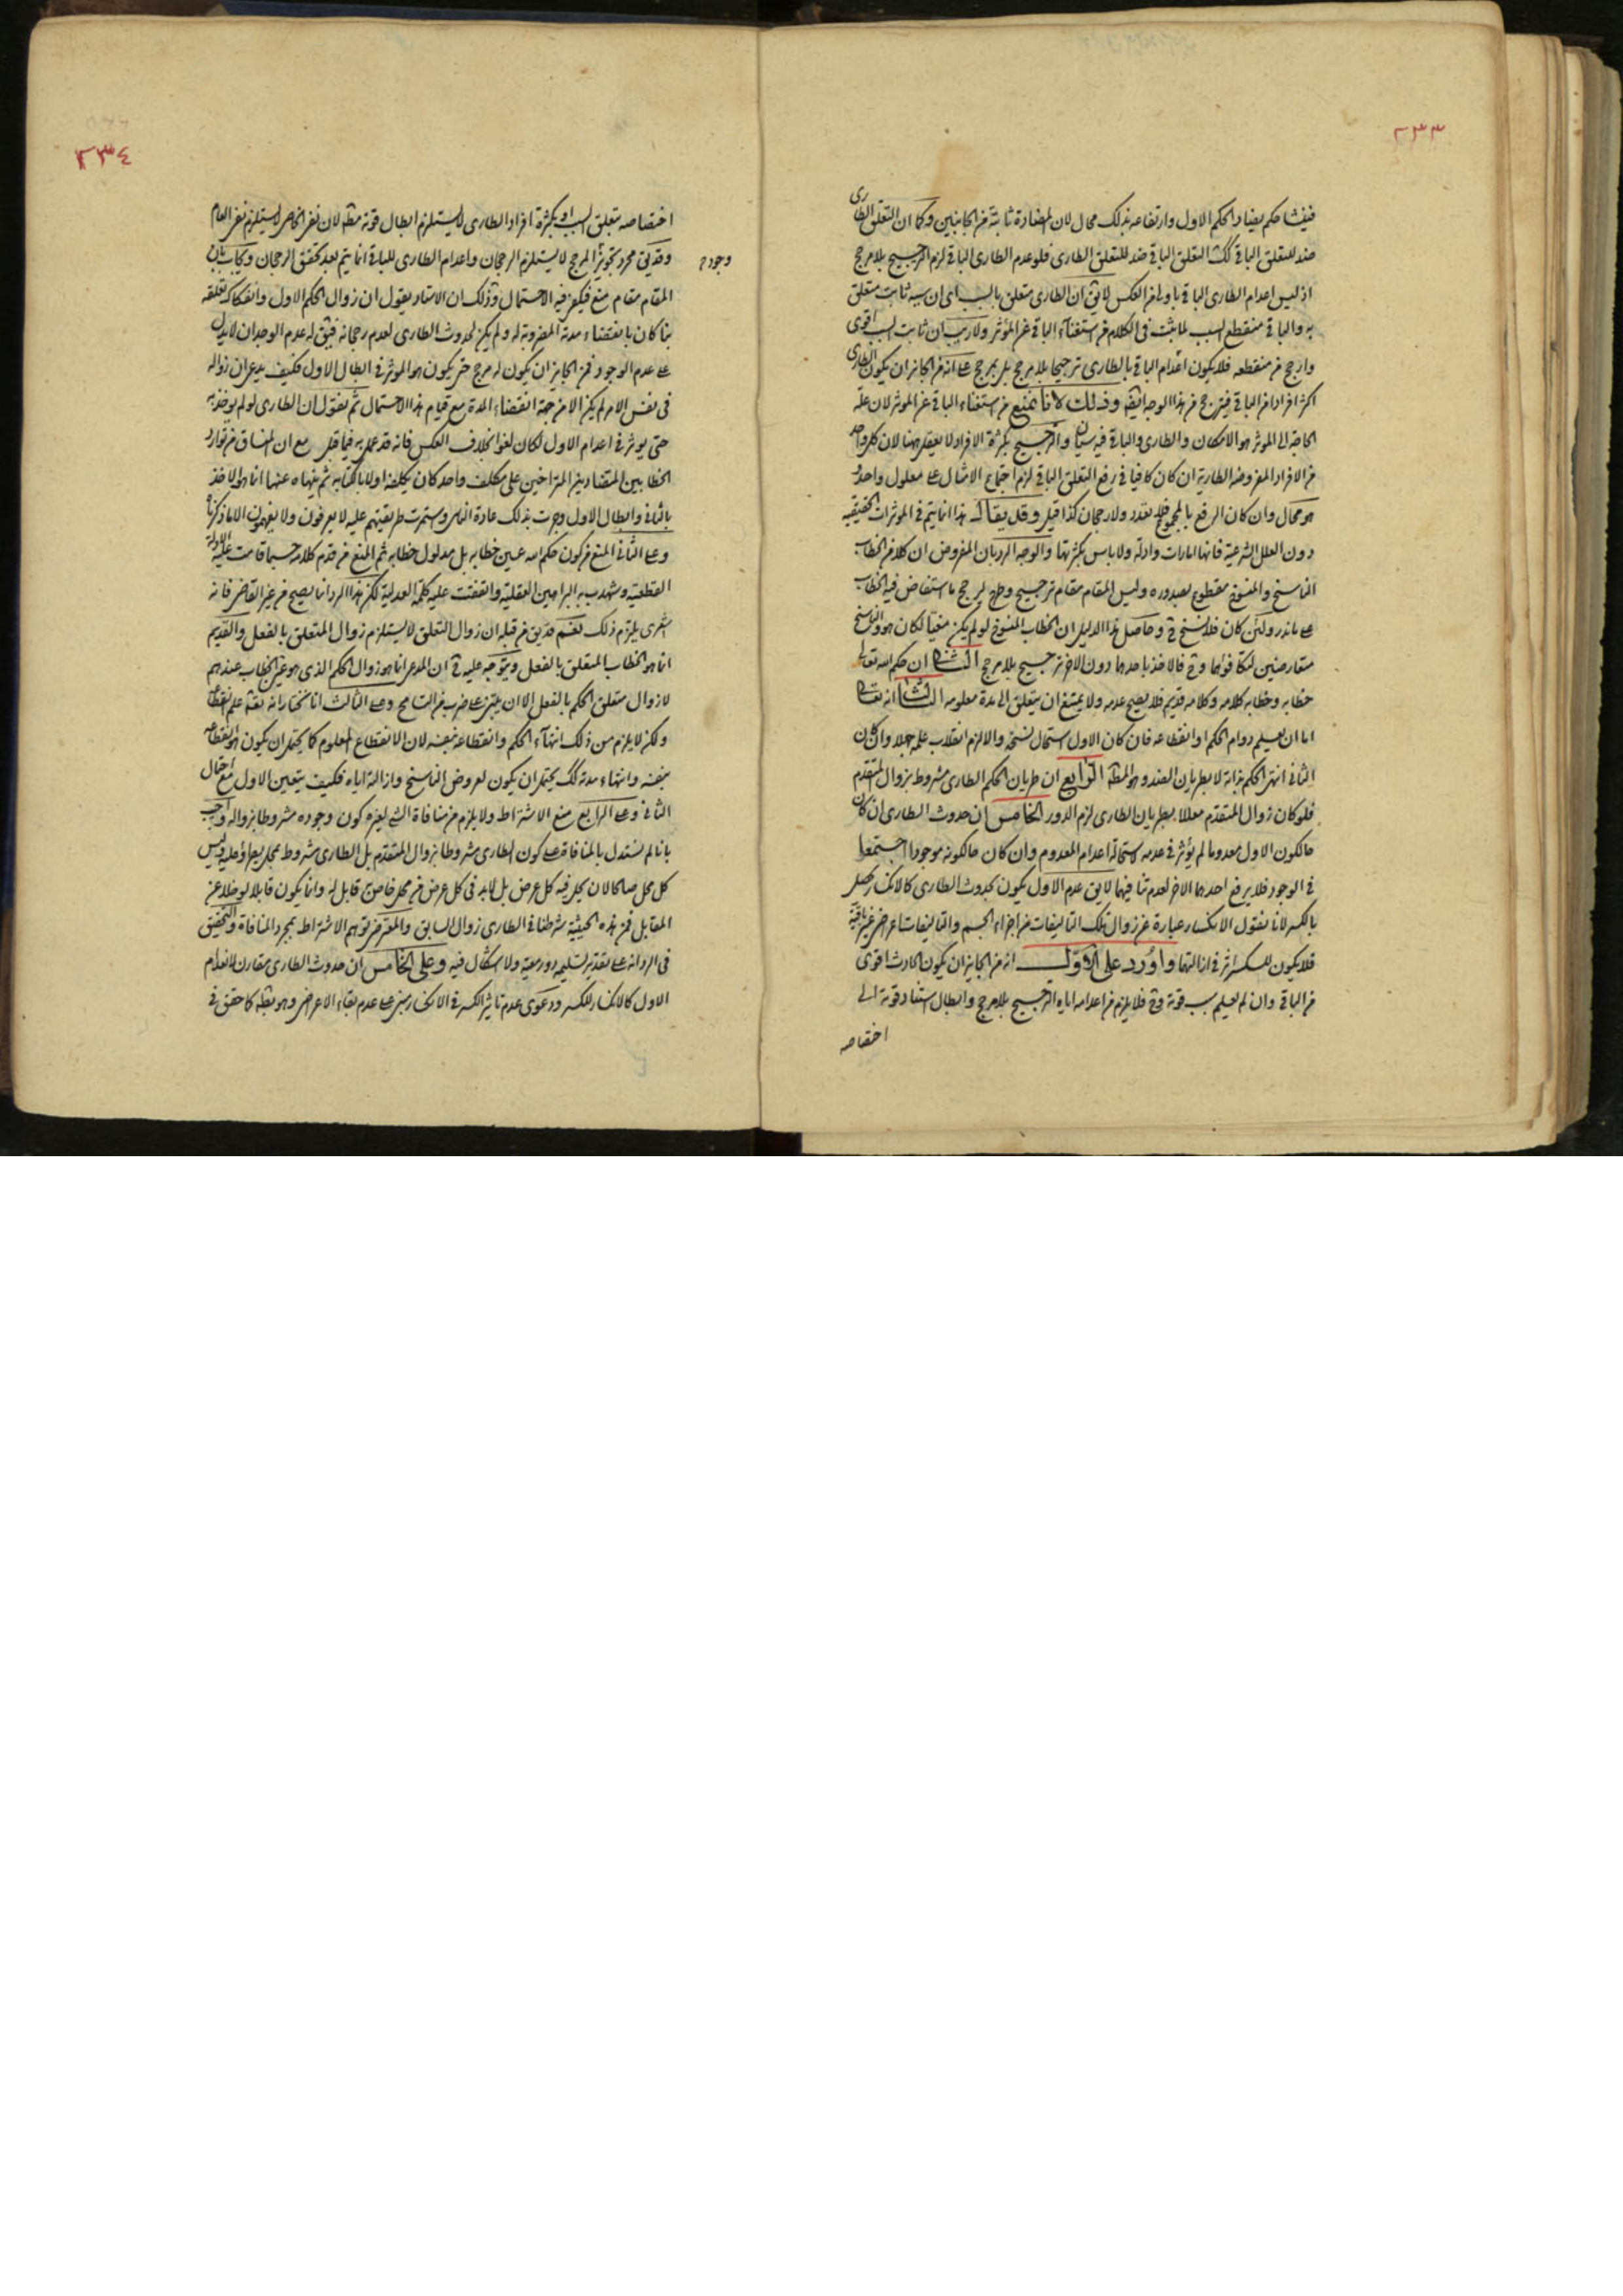 ٢٣٣
فينشا حكم يضاد الحكم الاول وارتفاعه بذلك محال لان المضادة ثابتة من الجانبين وكما ان التعلق الطارى
ضد للتعلق الباقى كك التعلق الباقى ضد للتعلق الطارى فلو عدم الطارى الباقى لزم الترجيح بلا مرجح
اذ ليس اعدام الطارى الباقى باولى من العكس لا يق ان الطارى متعلق بالسبب اى ان سببه ثابت متعلق
به والباقى منقطع السبب لما يثبت فى الكلام من استغناء الباقى عن المؤثر ولا ريب ان ثابت السبب اقوى
وارجح من منقطعه فلا يكون اعدام الباقى بالطارى ترجيحا بلا مرجح بل بمرجح على انه من الجائز ان يكون الطارى
اكثر افرادا من الباقى فيترجح من هذا الوجه ايضا وذلك لانا نمنع من استغناء الباقى عن الموثر لان علة
الحاجة الى الموثر هو الامكان والطارى والباقى فيه سيان والترجيح بكثرة الافراد لا يعقل ههنا لان كل واحد
من الافراد المفروضة الطارية ان كان كافيا فى رفع التعلق الباقى لزم اجتماع الامثال على معلول واحد و
هو محال وان كان الرفع بالمجموع فلا تعدد ولا رجحان كذا قيل وقد يقال هذا انما يتم فى الموثرات الحقيقية
دون العلل الشرعية فانها امارات وادلة ولا باس بكثرتها والوجه الرد بان المفروض ان كلا من الخطاب
الناسخ والمنسوخ مقطوع بصدوره وليس المقام مقام ترجيح وطرح المرجح ما استفاض فيه الخطاب
على ما نذر ولئن كان فلا نسخ فى وحاصل هذا الدليل ان الخطاب المنسوخ لو لم يكن مغيا لكان هو والناسخ
متعارضين لتكافؤهما وح فالاخذ باحدهما دون الاخر ترجيح بلا مرجح الثانى ان حكم الله تعالى
خطابه وخطابه كلامه وكلامه قديم فلا يصح عدمه ولا يمتنع ان يتعلق الى مدة معلومة الثالث انه تعالى
اما ان يعلم دوام الحكم او انقطاعه فان كان الاول استحال نسخه والا لزم انقلاب علمه جهلا وان كان
الثانى انتهى الحكم بذاته لا بطريان الضد وهو المطلب الرابع ان طريان الحكم الطارى مشروط بزوال المتقدم
فلو كان زوال المتقدم معللا بطريان الطارى لزم الدور الخامس ان حدوث الطارى ان كان
حال كون الاول معدوما لم يؤثر فى عدمه لاستحالة اعدام المعدوم وان كان حال كونه موجودا اجتمعا
فى الوجود فلا يرفع احدهما الاخر لعدم تنافيهما لا يق عدم الاول يكون بحدوث الطارى كالانكسار يحصل
بالكسر لانا نقول الانكسار عبارة عن زوال تلك التاليفات من اجزاء الجسم والتاليفات اعراض غير باقية
فلا يكون للكسر اثر فى ازالتها واورد على الاول انه من الجايز ان يكون الحادث اقوى
من الباقى وان لم نعلم سبب قوته وح فلا يلزم من اعدامه اياه الترجيح بلا مرجح وابطال استناد قوته الى
اختصاصه
٢٣٤
اختصاصه بتعلق السبب او بكثرة افراد الطارى لا يستلزم ابطال قوته مطلقا لان نفى الخاص لا يستلزم نفى العام
وقد يق مجرد تجويز المرجح لا يستلزم الرجحان واعدام الطارى للباقى انما يتم بعد تحقق الرجحان ويجاب بان
وجوده
المقام مقام منع فيكفى فيه الاحتمال وذلك ان الاستاد يقول ان زوال الحكم الاول وانفكاك تعلقه
بنا كان بانقضاء مدته المضروبة له ولم يكن لحدوث الطارى لعدم رجحانه فيق له عدم الوجدان لا يدل
على عدم الوجود فمن الجايز ان يكون له مرجح حتى يكون هو الموثر فى ابطال الاول فكيف يدعى ان زواله
فى نفس الامر لم يكن الا من جهة انقضاء المدة مع قيام هذا الاحتمال ثم نقول ان الطارى لو لم يوخذ به
حتى يوثر فى اعدام الاول لكان لغوا بخلاف العكس فانه قد عمل به فيما قبل مع ان المنساق من توارد
الخطابين المتضادين المتراخيين على مكلف واحد كان يكلفه اولا بالكتابة ثم ينهاه عنها انما هو الاخذ
بالثانى وابطال الاول وجرت بذلك عادة الناس واستمرت طريقتهم عليه لا يعرفون ولا يفهمون الا ما ذكرنا
وعلى الثانى المنع من كون حكم الله عين خطابه بل مدلول خطابه ثم المنع من قدم كلامه حسبما قامت عليه الادلة
القطعية وشهدت به البراهين العقلية واتفقت عليه كلمة العدلية لكن هذا الرد انما يصح من غير القاضى فانه
اشعرى يلتزم ذلك نعم قد يق من قبله ان زوال التعلق لا يستلزم زوال المتعلق بالفعل والقديم
انما هو الخطاب المتعلق بالفعل ويتوجه عليه ح ان المدعى انما هو زوال الحكم الذى هو عين الخطاب عندهم
لا زوال متعلق الحكم بالفعل الا ان يبتنى على ضرب من التسامح وعلى الثالث انا نختار انه تعالى علم انقطاعه
ولكن لا يلزم من ذلك انتهاء الحكم وانقطاعه بنفسه لان الانقطاع المعلوم كما يحتمل ان يكون هو انقطاعه
بنفسه وانتهاء مدته كك يحتمل ان يكون لعروض الناسخ وازالته اياه فكيف يتعين الاول مع احتمال
الثانى وعلى الرابع منع الاشتراط ولا يلزم من منافاة الشئ لغيره كون وجوده مشروطا بزواله واجيب
بانا لم نستدل بالمنافاة على كون الطارى مشروطا بزوال المتقدم بل الطارى مشروط بمحل يطرؤ عليه وليس
كل محل صالحا لان يحل فيه كل عرض بل لا بد فى كل عرض من محل خاص قابل له وانما يكون قابلا لو خلا عن
المقابل فمن هذه الحيثية شرطنا فى الطارى زوال السابق والمعترض توهم الاشتراط بمجرد المنافاة والتحقيق
فى الرد انه على تقدير تسليمه دور معية ولا اشكال فيه وعلى الخامس ان حدوث الطارى مقارن لانعدام
الاول كالانكسار للكسر ودعوى عدم تاثير الكسر فى الانكسار مبنى على عدم بقاء الاعراض وهو بط كما حقق فى